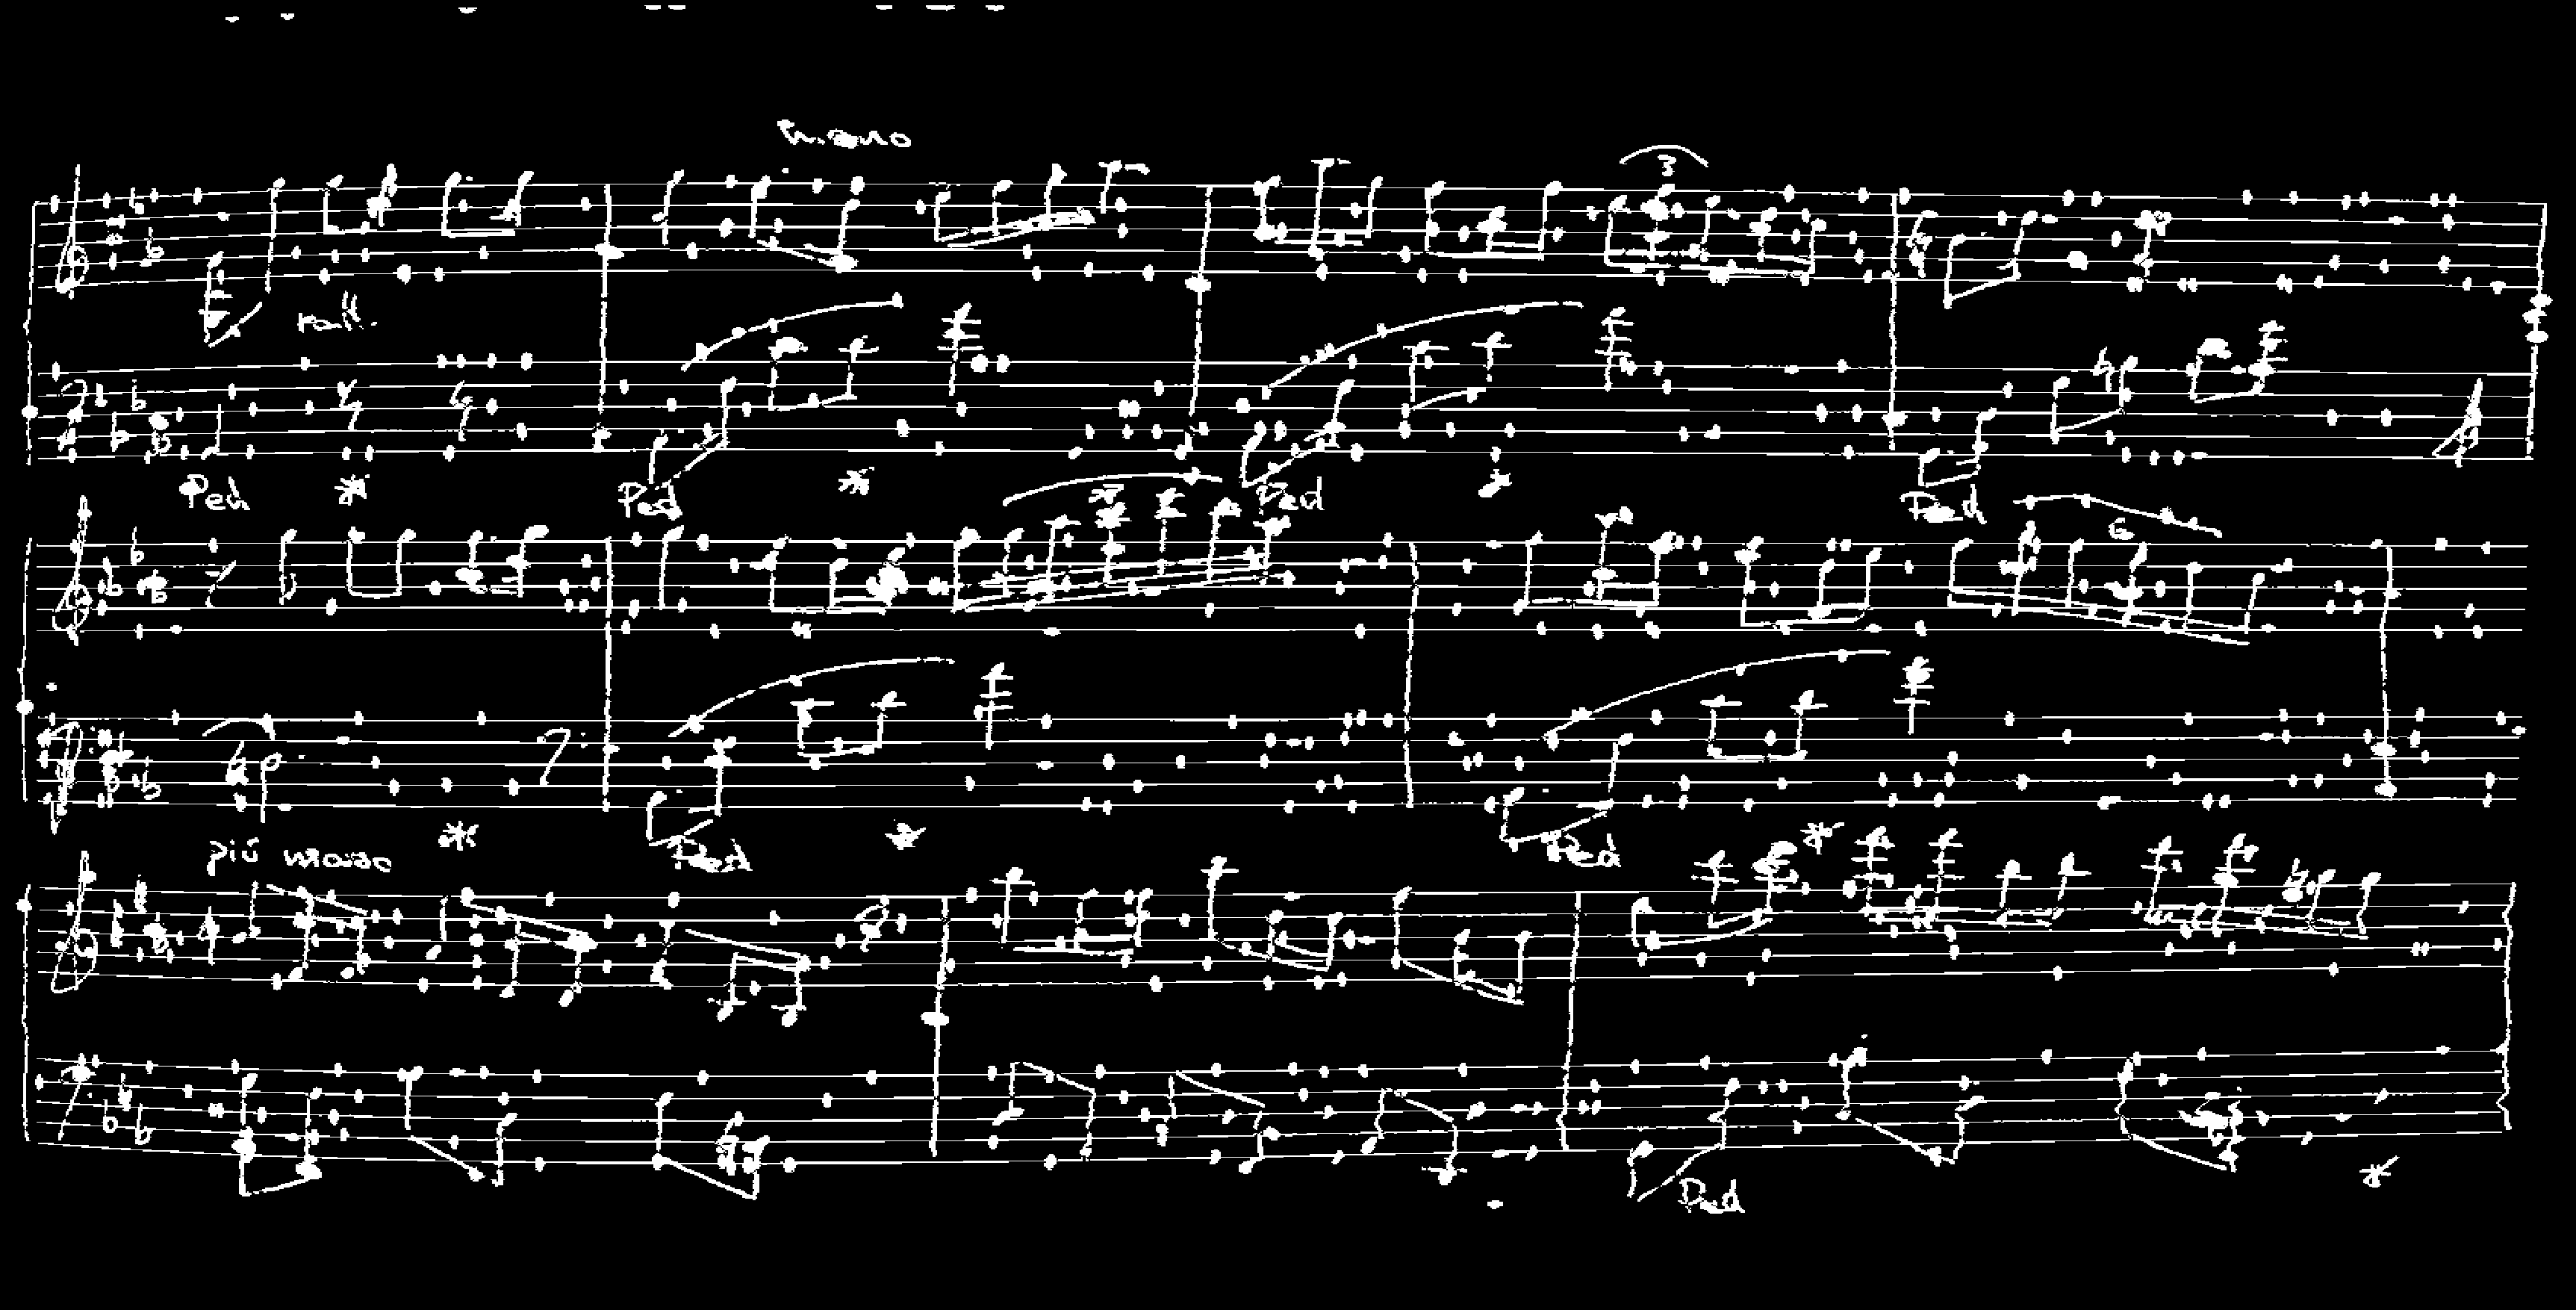 3
rall.
Ped * Ped * Ped * Ped
6
* Ped * Ped *
più mosso
Ped *